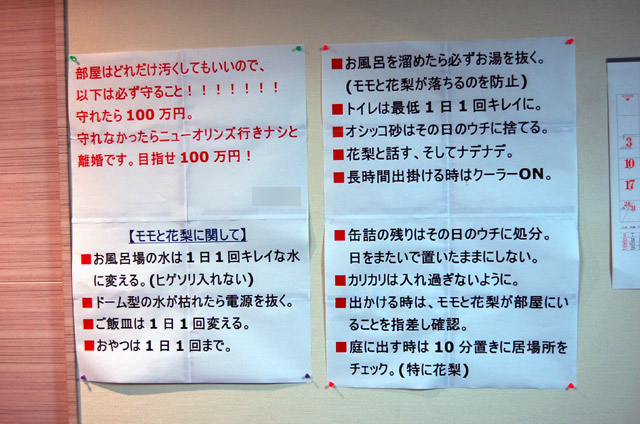 部屋はどれだけ汚くしてもいいので、
以下は必ず守ること！！！！！！！
守れたら100万円。
守れなかったらニューオリンズ行きナシと
離婚です。目指せ100万円！
【モモと花梨に関して】
■お風呂場の水は1日1回キレイな水
に変える。(ヒゲソリ入れない)
■ドーム型の水が枯れたら電源を抜く。
■ご飯皿は1日1回変える。
■おやつは1日1回まで。
■お風呂を溜めたら必ずお湯を抜く。
(モモと花梨が落ちるのを防止)
■トイレは最低1日1回キレイに。
■オシッコ砂はその日のウチに捨てる。
■花梨と話す、そしてナデナデ。
■長時間出掛ける時はクーラーON。
■缶詰の残りはその日のウチに処分。
日をまたいで置いたままにしない。
■カリカリは入れ過ぎないように。
■出かける時は、モモと花梨が部屋にい
ることを指差し確認。
■庭に出す時は10分置きに居場所を
チェック。(特に花梨)
3
10
17